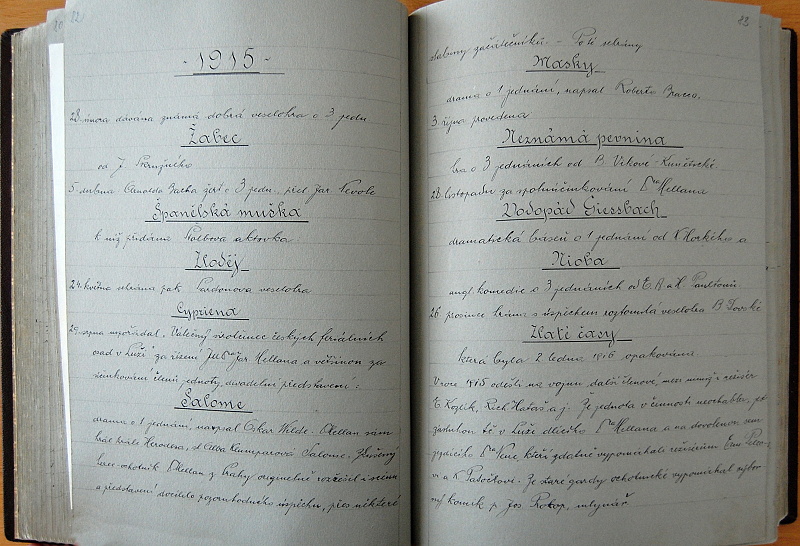 82
- 1915 -
28. února dávána známá dobrá veselohra o 3 jedn.
Žabec
od J.
5. dubna Arnolda Bacha žert o 3 jedn. přel. Jar. Nevole
Španělská muška
k níž přidána Štolbova aktovka
Zloděj
24. května sehrána pak Sardouova veselohra
Cypriena
29. srpna uspořádal "Válečný srotinec českých feriálních
osad v Luži" za řízení JUDra Jar. Hellana a většinou za
účinkování členů jednoty, dvoudílné představení:
Salome
drama o 1 jednání, napsal Oskar Wilde. Hellan sám
hrál krále Herodesa, sl. Alba Salome.
herec-ochotník Hellan z Prahy originelně rozřešil scénu
a představení docílilo pozoruhodného úspěchu, přes některé
83
slabiny začátečníků - Poté sehrány
Masky
drama o 1 jednání, napsal Roberto Bracco.
3. října provedena
Neznámá pevnina
hra o 3 jednáních od B. Vikové-Kunětické.
28. listopadu za spoluúčinkování Dra Hellana
Vodopád Giessbach
dramatická báseň o 1 jednání od a
Nioba
angl. komedie o 3 jednáních od E. A. a H. Paultonů
26. prosince hrána s úspěchem roztomilá veselohra B.
Zlaté časy
která byla 2. ledna 1916 opakována
V roce 1915 odešli na vojnu další členové, mezi nimiž i režisér
K. Koglík, Rich. Hataš a j. Že jednota v činnosti neochabla, jest
zásluhou též v Luže dlícího Dra Hellana a na dovolenou sem
Dra kteří zdatně vypomáhali režisérům Em.
a K. Patočkovi. Ze staré gardy ochotnické vypomáhal
komik p. Jos. Prokop, mlynář